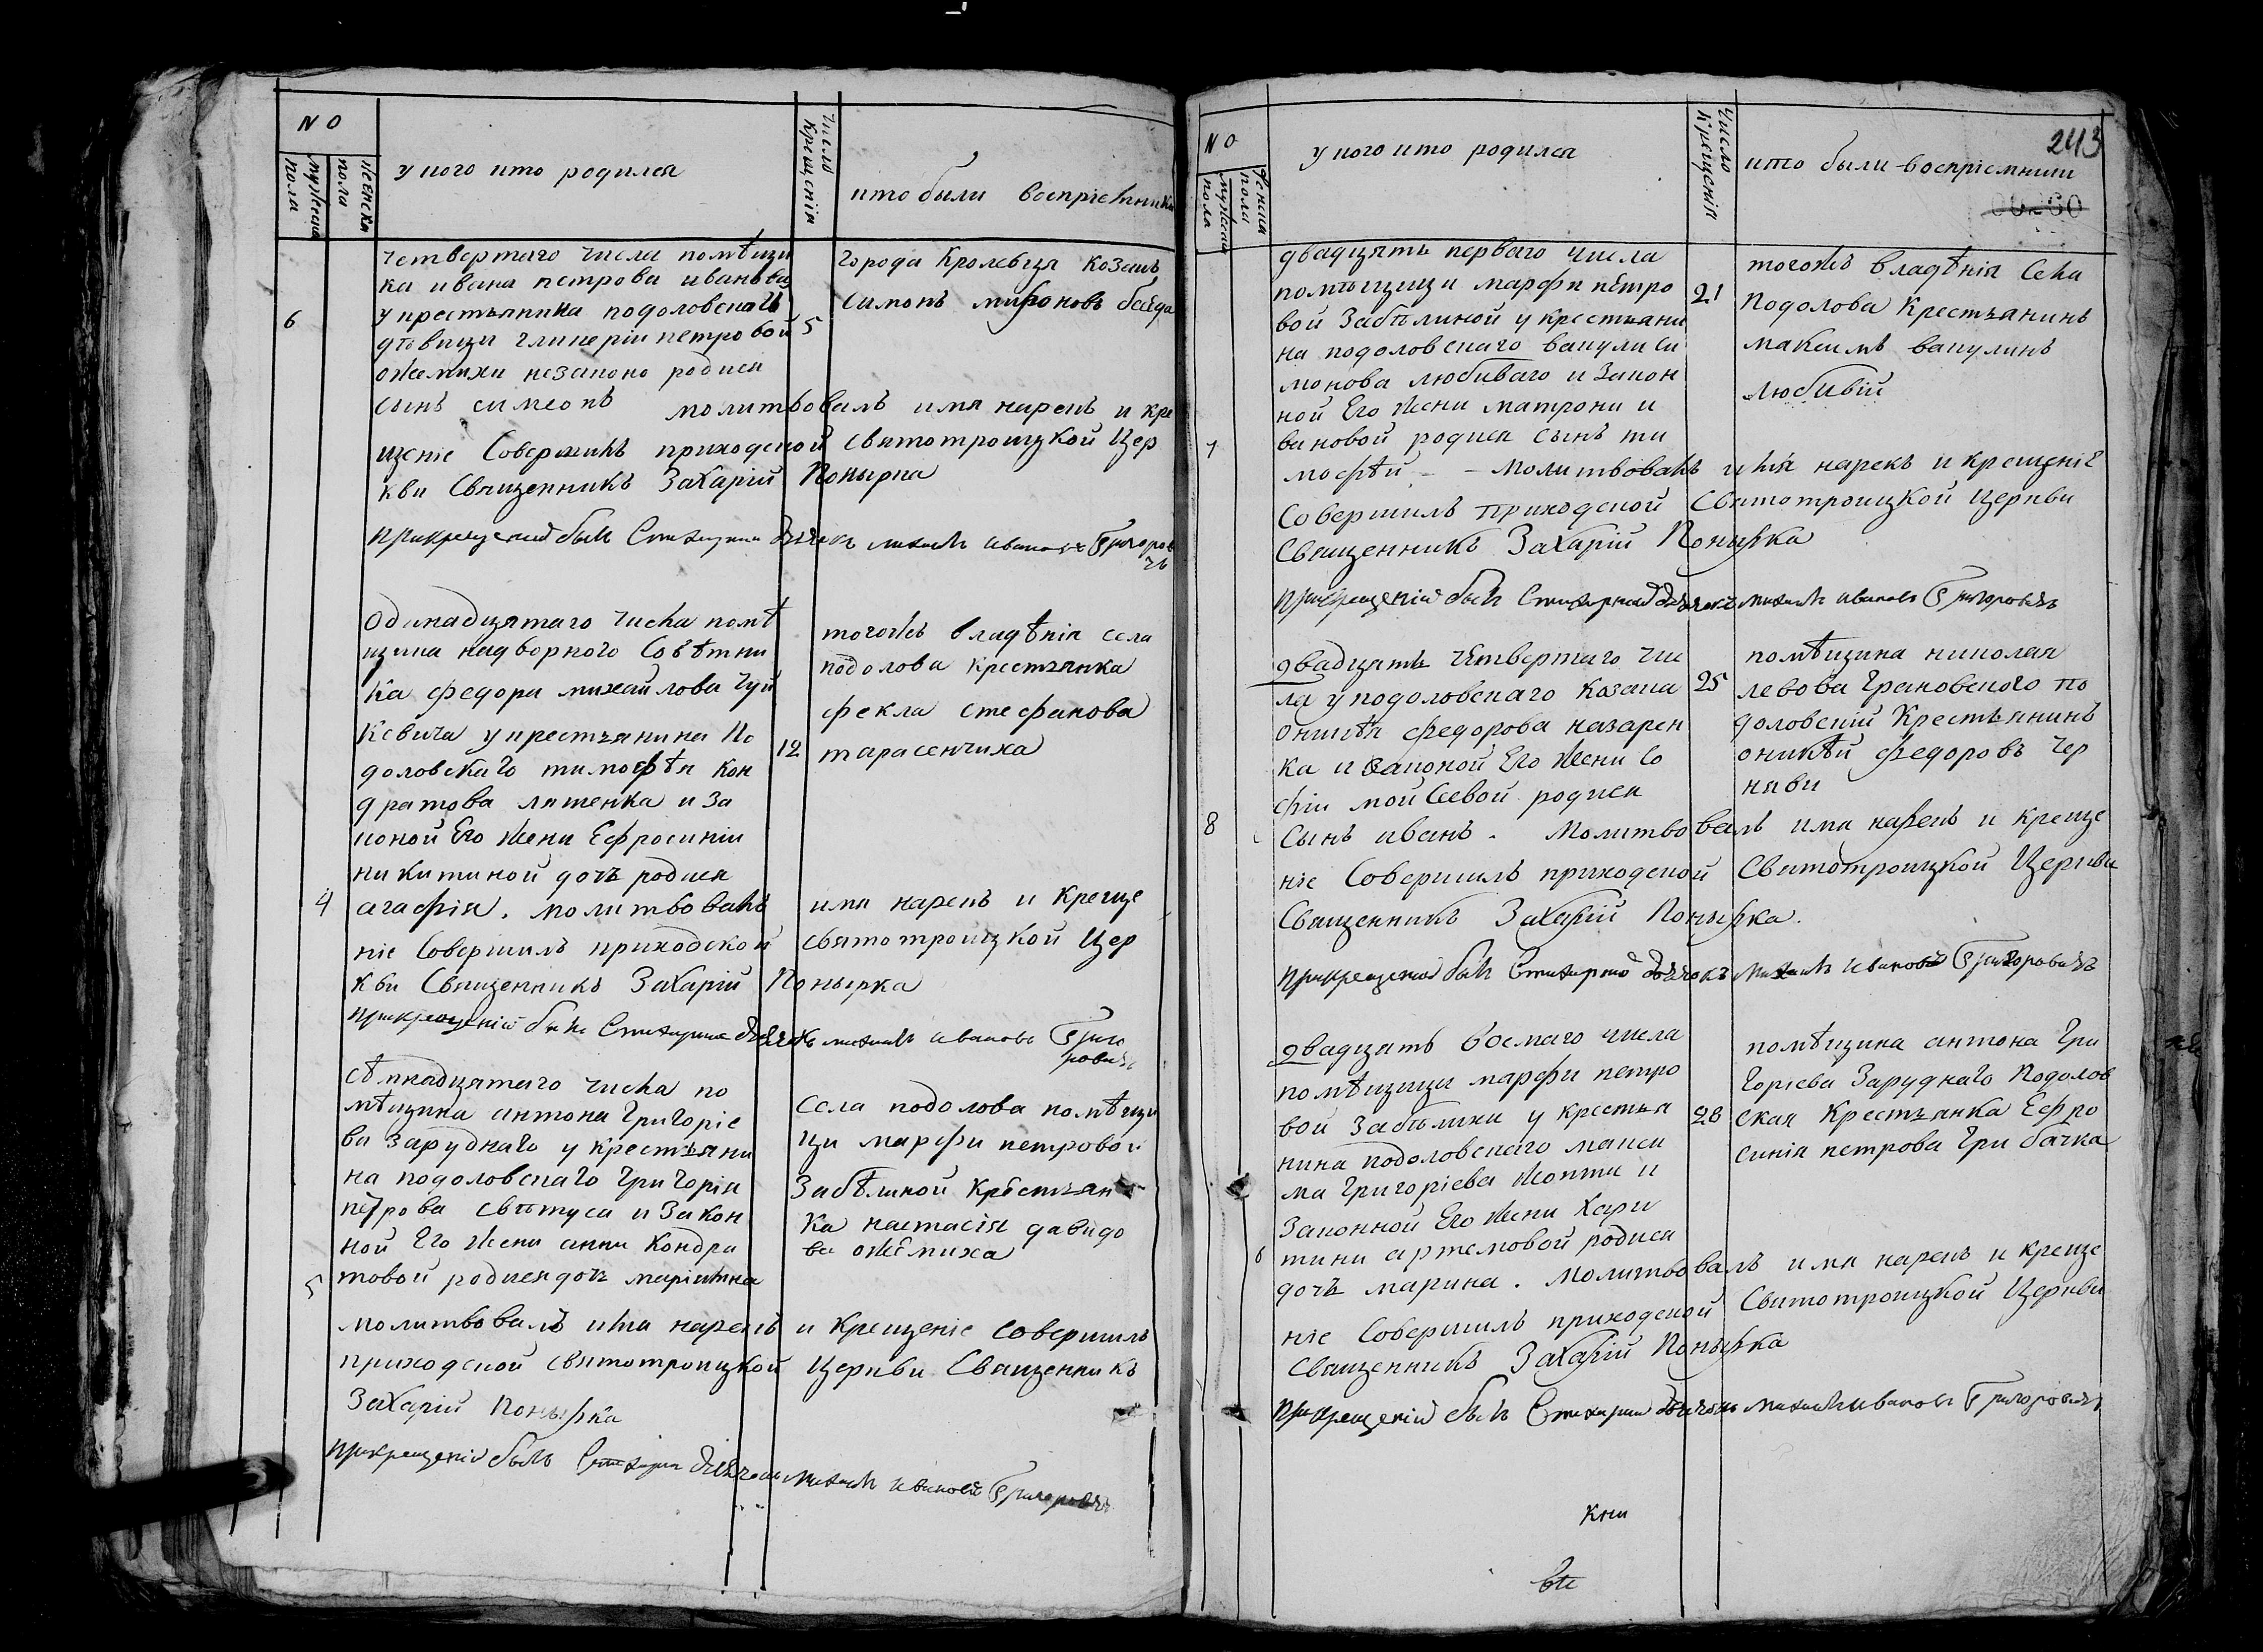 №
мужеска пола
женска пола
у кого кто родился
Число крещенія
кто были воспріемники
четвертаго числа помѣщи
ка ивана петрова иваньва
у крестьянина подоловскаго
дѣвици гликеріи петровой
ожемики незаконо родися
сынъ симеонъ молитвовалъ имя нарекъ и кре
щеніе Совершилъ приходской Святотроицкой Цер
кви Священникъ Захарій Понырка
6
5
города Кролевця Козакъ
Симонъ мироновъ беседа
прикрещеніи былъ Стихарни дьячокъ михаилъ ивановъ Григоров
чъ
Одинадцятаго числа помѣ
щика надворного Совѣтни
ка федора михайлова Чуй
кевича у крестьянина По
доловскаго тимофѣя кон
дратова лятенка и За
коной Его жени Ефросиніи
никитиной дочь родися
4
агафія. молитвовалъ имя нарекъ и креще
ніе Совершилъ приходской святотроицкой Цер
кви Священникъ Захарій Понырка
12
тогожъ владѣнія села
подолова крестьянка
фекла стефанова
тарасенчиха
прикрещеніи былъ Стихарни дьячокъ михаилъ ивановъ Григо
ровичъ
Сѣмнадцятаго числа по
мѣщика антона Григоріе
ва Заруднаго у крестьяни
на подоловскаго Григорія
петрова свѣтуса и Закон
ной Его жени анни Кондра
5
товой родися дочь маріамна
села подолова помѣщи
ци марфи петровой
Забѣлиной крестьян
ка настасія давидо
ва ожемиха
молитвовалъ имя нарекъ и крещеніе совершилъ
приходской святотроицкой Церкви Священникъ
Захарій Понырка
прикрещеніи былъ Стихарни дьячокъ михаилъ ивановъ Григоровичъ
243
№
мужеска пола
женска пола
у кого кто родился
Число Крещенія
кто были воспріемники
двадцять перваго числа
помѣщици марфи петро
вой Забѣлиной у крестьяни
на подоловскаго вакули си
монова любиваго и Закон
ной Его жени матрони и
вановой родися сынъ ти
7
мофѣй - - молитвовалъ имя нарекъ и крещеніе
Совершилъ приходской Святотроицкой Церкви
Священникъ Захарій Понырка
21
тогожъ владѣнія села
Подолова Крестьянинъ
максимъ вакулинъ
любивій
прикрещеніи былъ Стихарний дьячокъ михаилъ ивановъ Григоровичъ
двадцять четвертаго чис
ла у подоловскаго козака
оникѣя федорова назарен
ка и Законой Его жени Со
фіи мойсеевой родися
8
Сынъ иванъ. Молитвовалъ имя нарекъ и креще
ніе Совершилъ приходской Святотроицкой Церкви
Священникъ Захарій Понырка.
25
помѣщика николая
левова Грановского по
доловскій Крестьянинъ
оникѣй федоровъ чер
няви
прикрещеніи былъ Стихарний дьячокъ михаилъ ивановъ Григоровичъ
двадцять восмаго числа
помѣщици марфи петро
вой Забѣлини у крестья
нина подоловскаго макси
ма Григоріева Жолти и
Законной Его жени Хари
тини артемовой родися
6
дочь марина. Молитвовалъ имя нарекъ и креще
ніе Совершилъ приходской Святотроицкой Церкви
Священникъ Захарій Понырка
28
помѣщика антона Гри
горіева Заруднаго Подолов
ская Крестьянка Ефро
синія петрова Грибачка
прикрещеніи былъ Стихарни дьячокъ михаилъ ивановъ Григоровичъ